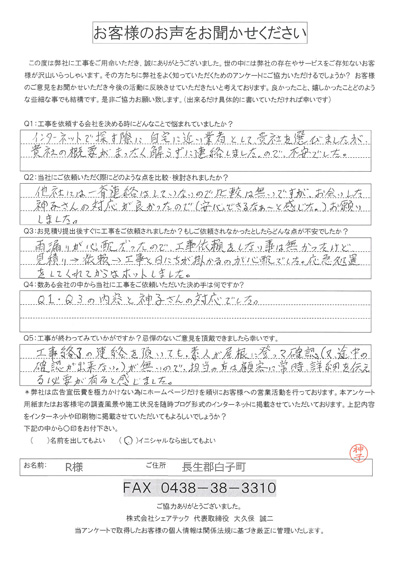 お客様のお声をお聞かせください
この度は弊社に工事をご用命いただき、誠にありがとうございました。世の中には弊社の存在やサービスをご存知ないお客
様が沢山いらっしゃいます。その方たちに弊社をよく知っていただくためのアンケートにご協力いただけるでしょうか? お客様
のご意見をお聞かせいただき今後の活動に反映させていただきたいと考えております。良かったこと、嬉しかったことどのよう
な些細な事でも結構です。是非ご協力お願い致します。(出来るだけ具体的に書いていただければ幸いです)
Q1:工事を依頼する会社を決める際にどんなことで悩まれていましたか?
インターネットで探す際に自宅に近い業者として貴社を選びましたが、
貴社の概要がまったく解らずに連絡しました。ので、不安でした。
Q2:当社にご依頼いただく際にどのような点を比較・検討されましたか?
他社には一番連絡はしていないので比較は無いですが、お会いした
神子さんの対応が良かったので(安心できるなぁ~と感じた。)お願い
しました。
Q3:お見積り提出後すぐに工事をご依頼されましたか?もしご依頼されなかったとしたらどんな点が不安でしたか?
雨漏りが心配だったので、工事依頼をしない事は無かったけど
見積り→依頼→工事と日にちが掛かるのが心配でした。応急処置
をしてくれてからはホットしました。
Q4:数ある会社の中から当社に工事をご依頼いただいた決め手は何ですか?
Q1・Q3の内容と神子さんの対応でした。
Q5:工事が終わってみていかがですか?忌憚のないご意見を頂戴できましたら幸いです。
工事終了の連絡を頂いても、素人が屋根に登って確認(又、途中の
確認が出来ない。)が無いので、担当の方は顧客に常時、詳細を伝え
る必要が有ると感じました。
*弊社は広告宣伝費を極力かけない為にホームページだけを頼りにお客様への営業活動を行っております。本アンケート
用紙またはお客様宅の調査風景や施工状況を随時ブログ形式のインターネットに掲載させていただいております。上記内容
をインターネットや印刷物に掲載させていただいてもよろしいでしょうか?
下記の中から○印をお付け下さい。
( )名前を出してもよい (○)イニシャルなら出してもよい
神子
お名前: R様 ご住所 長生郡白子町
FAX 0438-38-3310
ご協力ありがとうございました。
株式会社シェアテック 代表取締役 太久保 誠二
当アンケートで取得したお客様の個人情報は関係法規に基づき厳正に管理いたします。